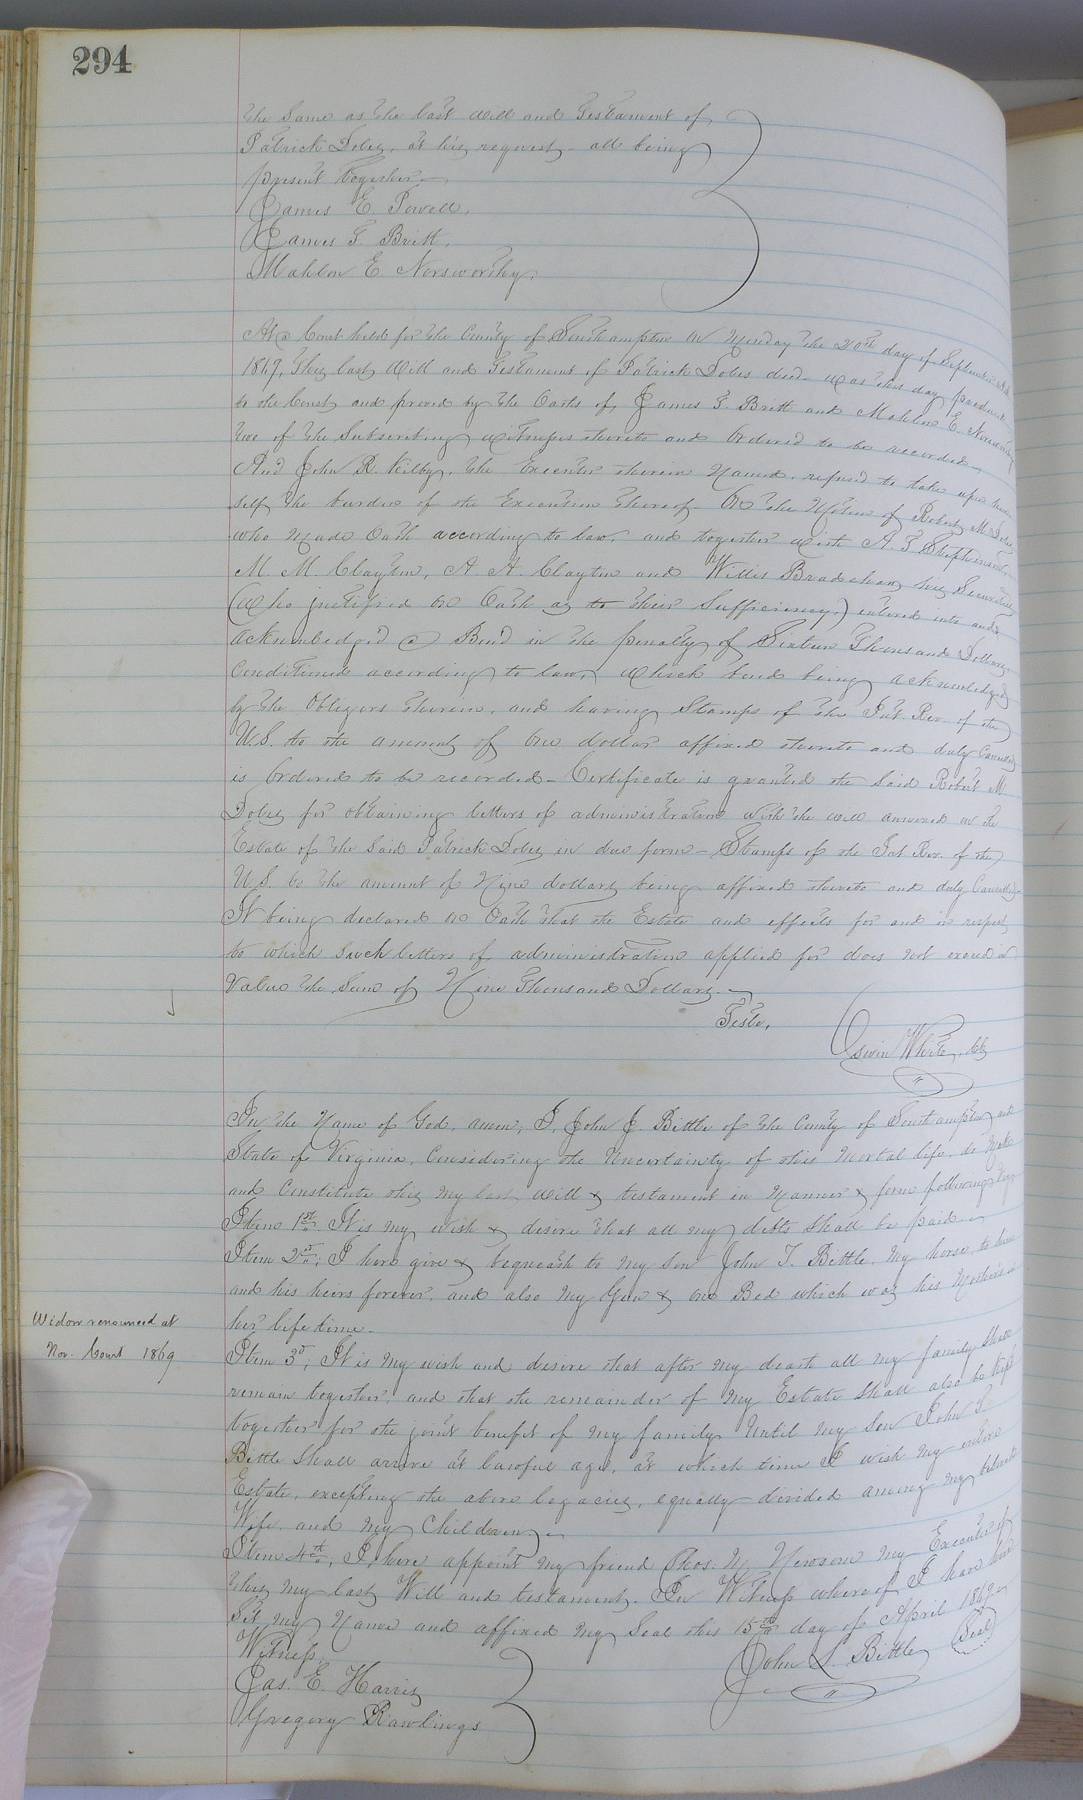 294
the Same as the last Will and Testament of
Patrick Doles, at his request - all being
present together.
James E. Powell,
James T. Britt,
Mahlon E. Norsworthy.
At a Court held for the County of Southampton on Monday the 20th day of September
1869. This last Will and Testament of Patrick Doles decd. was this day produced
to the Court and proved by the Oaths of James T. Britt and Mahlon E. Norsworthy
two of the Subscribing witnesses thereto and Ordered to be recorded.
And John R. Kilby, the Executor therein Named, refused to take upon him-
self the burden of the Execution thereof On the Motion of Robert M. Doles
who made Oath according to law, and together with A. T. Stephenson
M. M. Clayton, A. A. Clayton and Willis Bradshaw his Securities
(Who justified on Oath as to their Sufficiency,) entered into and
acknowledged a Bond in the penalty of Sixteen Thousand Dollars
Conditioned according to law, which bond being acknowledged
by the Obligors therein, and having Stamps of the Int. Rev. of the
U.S. to the amount of One dollar affixed thereto and duly Cancelled
is Ordered to be recorded - Certificate is granted the Said Robert M
Doles for obtaining letters of administration with the will annexed on the
Estate of the Said Patrick Doles in due form - Stamps of the Int. Rev. of the
U.S. to the amount of Nine dollars being affixed thereto and duly Cancelled
It being declared on Oath that the Estate and effects for and in respect
to which such letters of administration applied for does not exceed in
Value the Sum of Nine Thousand Dollars.
Teste,
Oswin White, Clk
In the Name of God, amen, I, John J. Bittle of the County of Southampton and
State of Virginia, Considering the Uncertainty of this Mortal life, do Make
and Constitute this my last will & testament in Manner & form following
Item 1st. It is my wish & desire that all my debts shall be paid.
Item 2nd; I here give & bequeath to my Son John T. Bittle, my horse, to him
and his heirs forever, and also my Gun & one Bed which was his Mother's in
her life time.
Widow renounced at
Nov. Court 1869
Item 3d; It is my wish and desire that after my death all my family shall
remain together, and that the remainder of my Estate shall also be kept
together for the joint benefit of my family Until my Son John T.
Bittle shall arrive at lawful age, at which time I wish my entire
Estate, excepting the above legacies, equally divided among my beloved
Wife, and my Children.
Item 4th; I here appoint my friend Thos. N. Newsom my Executor of
this my last Will and testament. In Witness whereof, I have here
Set my Name and affixed my Seal this 15th day of April 1869.
Witness,
John S. Bittle Seal
Jas. E. Harris
Gregory Rawlings